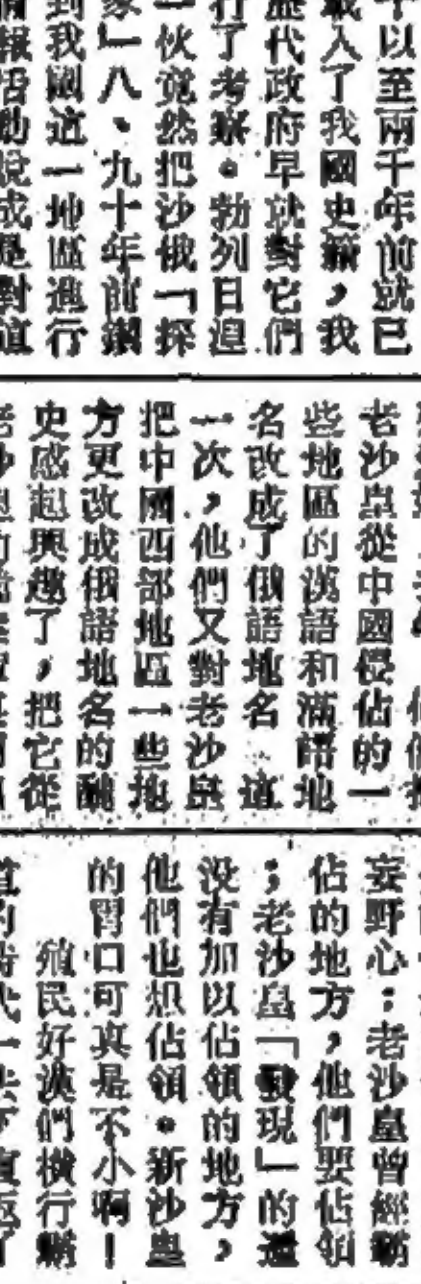 千以至兩千年前就已
載入了我國史籍,我
歷代政府早就對它們
行了考察。勃列日湼
一伙竟然把沙俄「探
家」八、九十年前溜
到我國這一地區進行
情報活動說成是對這
老沙皇從中國侵佔的一
些地區的漢語和滿語地
名改成了俄語地名。這
一次,他們又對老沙皇
把中國西部地區一些地
方更改成俄語地名的醜
史感起興趣了,把它從
妄野心:老沙皇曾經霸
佔的地方,他們要佔領
;老沙皇「發現」的還
沒有加以佔領的地方,
他們也想佔領。新沙皇
的胃口可真是不小啊!
殖民好漢們橫行